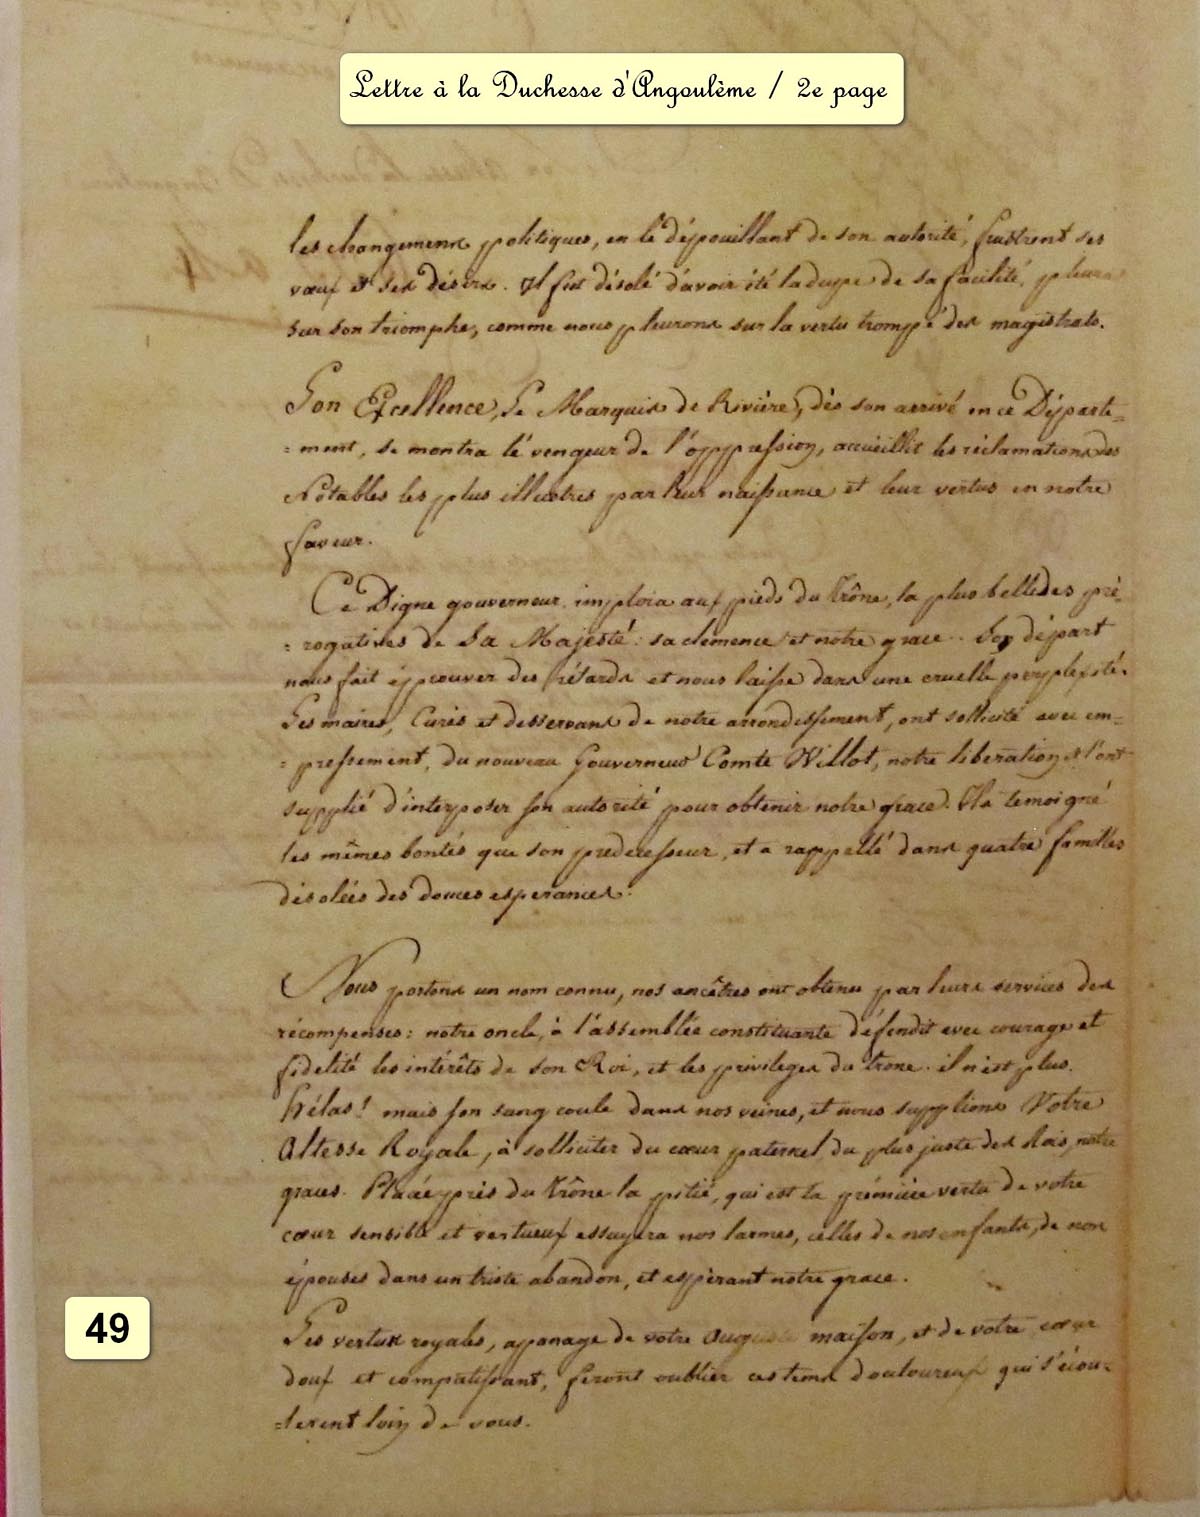 Lettre à la Duchesse d'Angoulème / 2e page
les changemens politiques, en le dépouillant de son autorité, frustrent ses
vœux et ses désirs. Il fut désolé d'avoir été la dupe de sa facilité, pleura
sur son triomphe, comme nous pleurons sur la vertu trompé des magistrats.
Son Excellence, Le Marquis de Rivière, dès son arrivé en ce Départe=
=ment, se montra le vengeur de l'oppression, accueillit les réclamations des
Notables les plus illustres par leur naissance et leur vertus en notre
faveur.
Ce Digne gouverneur implora aux pieds du Trône, la plus belle des pré=
=rogatives de Sa Majesté: sa clémence et notre grace. Son départ
nous fait éprouver des rétards et nous laisse dans une cruelle perplexité.
Les maires, Curés et desservans de notre arrondissement, ont sollicité avec em=
=pressement, du nouveau Gouverneur Comte Willot, notre libération et l'ont
supplié d'interposer son autorité pour obtenir notre grace. Il a temoigné
les mêmes bontés que son predecesseur, et a rappellé dans quatre familles
désolées des douces esperances.
Nous portons un nom connu, nos ancêtres ont obtenu par leurs services des
récompenses: notre oncle, à l'assemblée constituante défendit avec courage et
fidelité les intérêts de son Roi, et les privileges du trone. il n'est plus.
hélas! mais son sang coule dans nos veines, et nous supplions Votre
Altesse Royale, à solliciter du cœur paternel du plus juste des Rois, notre
graces. Placée près du Trône la pitié, qui est la prémière vertu de votre
cœur sensible et vertueux essuyera nos larmes, celles de nos enfants, de nos
épouses dans un triste abandon, et espèrant notre grace.
Les vertus royales, appanage de votre auguste maison, et de votre cœur
doux et compatissant, feront oublier ces tems douloureux qui s'écou=
=lerent loin de vous.
49